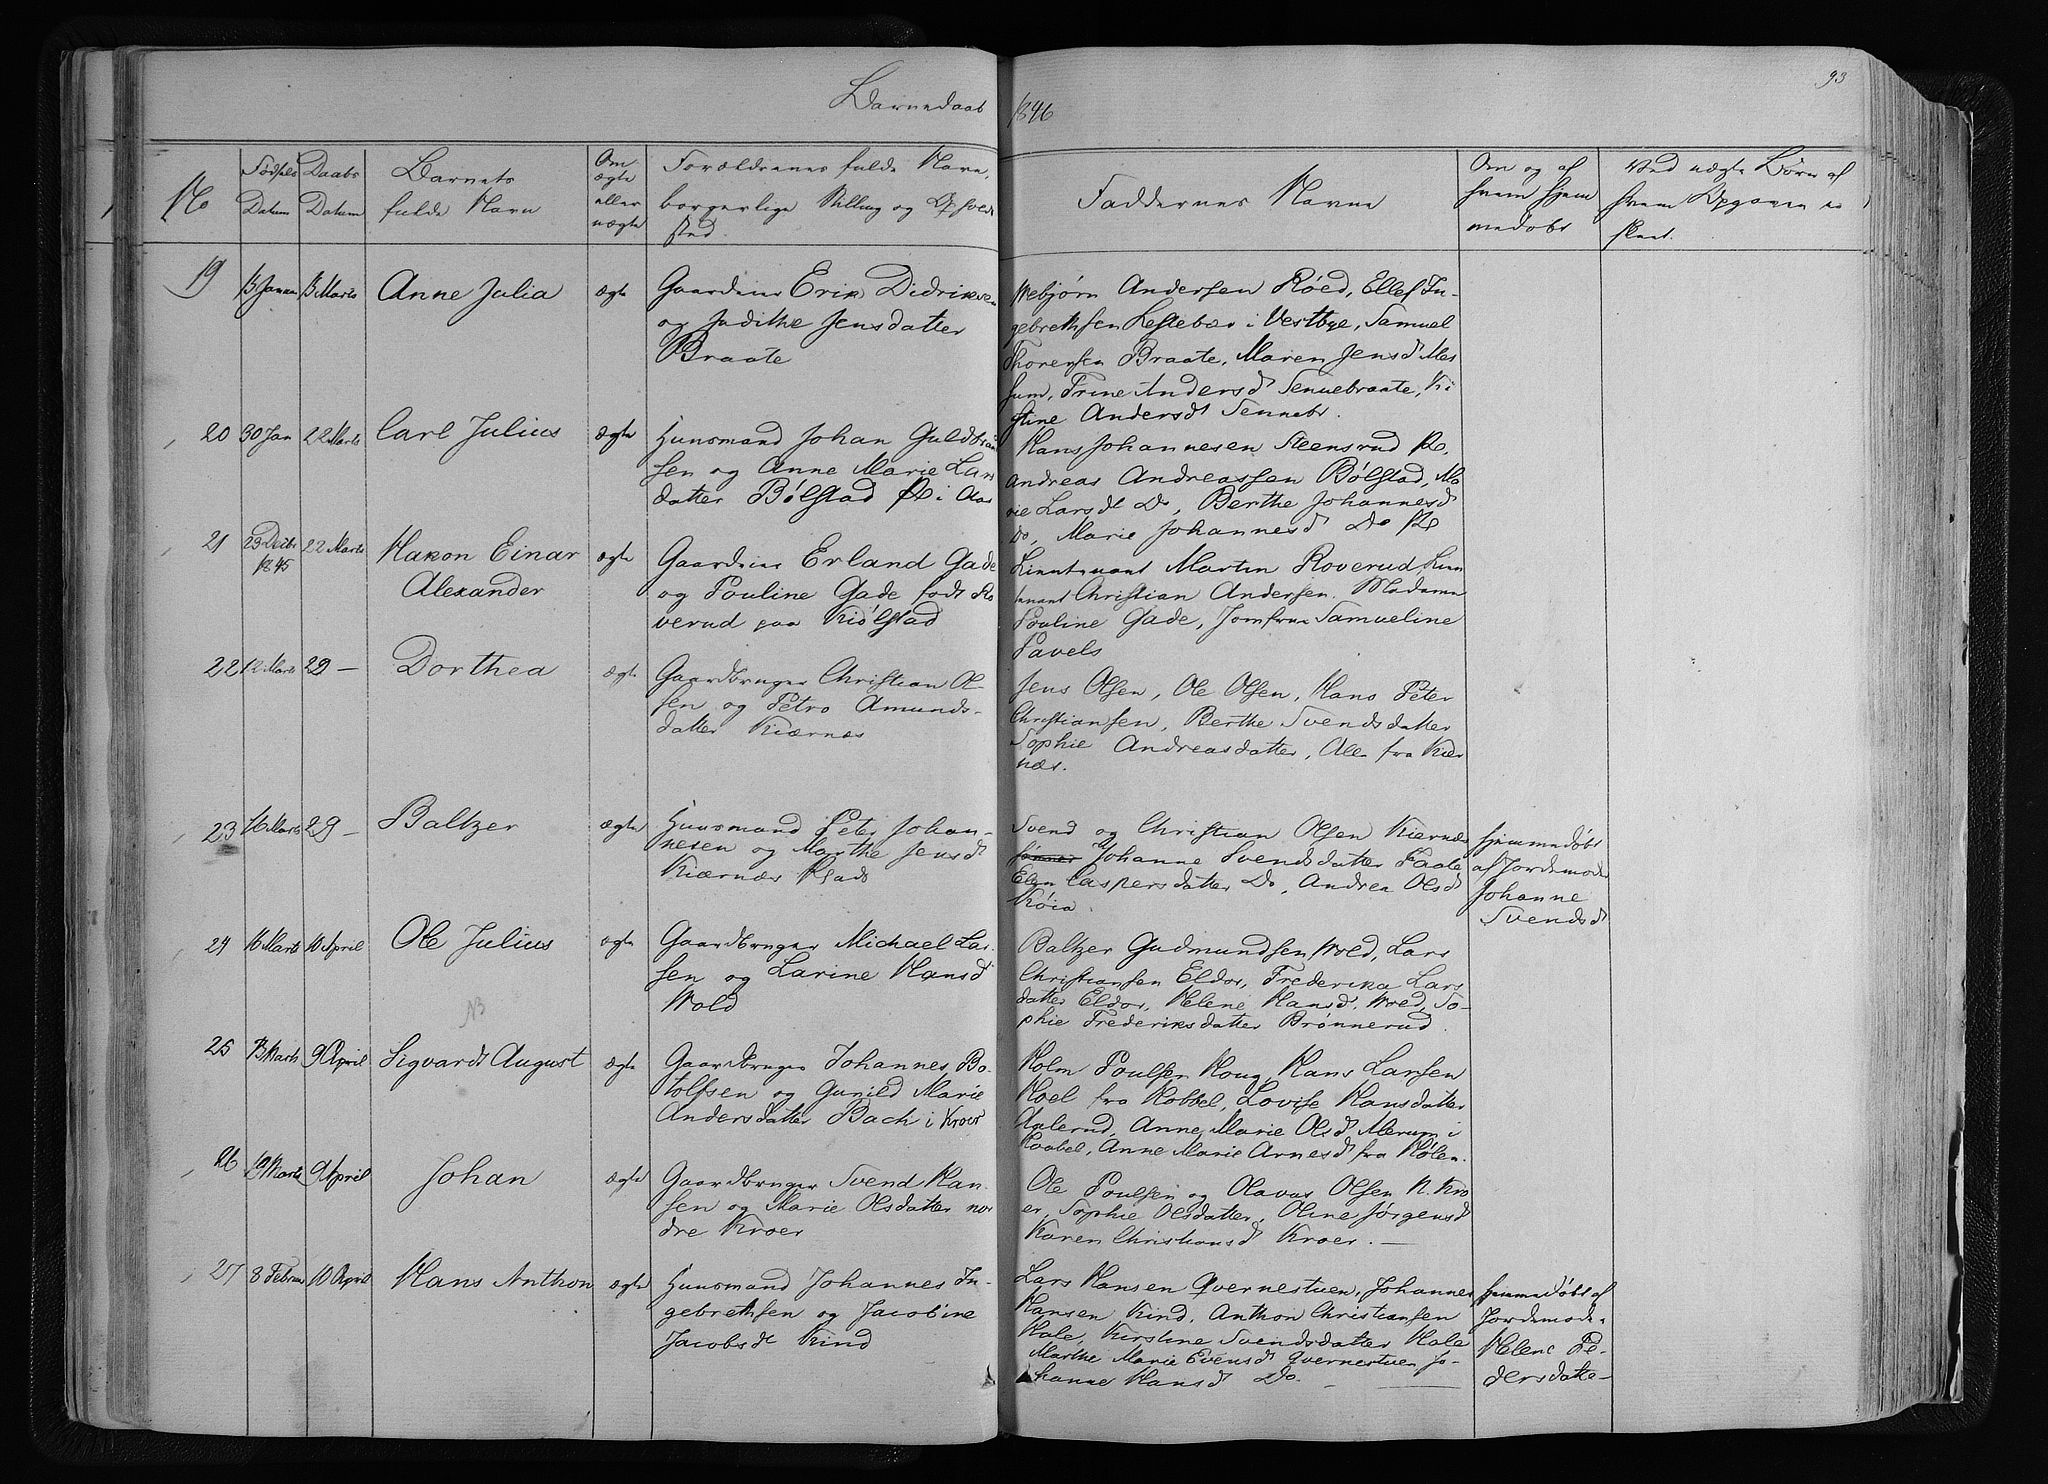 Barnedaab 1846
93
No
Fødsels Datum
Daabs Datum
Barnets fulde Navn
Om ægte eller uægte
Forældrenes fulde Navn, borgerlige Stilling og Opholdssted.
Faddernes Navne
Om og af hvem hjemmedøbt
Ved uægte Børn af hvem Opgaven er skeet.
19
13 Januar
13 Marts
Anne Julia
ægte
Gaardeier Erik Didriksen
og Jadithe Jensdatter
Braate
Webjørn Andersen Røed, Ellef In-
gebrethsen Lestebær i Vestbye, Samuel
Thorersen Braate, Maren Jensd Mes
sum, Trine Andersd Sennebraate, Ki
stine Andersdt Sennebr.
20
30 Jan
22 Marts
Carl Julius
ægte
Huusmand Johan Guldbran
sen og Anne Marie Lars
datter Bølstad Pl i Aas
Hans Johannesen Steensrud Pl,
Andreas Andreassen Bølstad, Ma
rie Larsdt Do, Berthe Johannesd
Do, Marie Johannesd Do Pl
21
23 Decbr
1845
22 Marts
Hakon Einar
Alexander
ægte
Gaardeier Erland Gade
og Pouline Gade født Ro
verud paa Kiølstad
Lieutenant Martin Roverud, Lieu
tenant Christian Andersen. Madame
Pouline Gade, Jomfrue Samueline
Pavels
22
12 Marts
29 -
Dorthea
ægte
Gaardbruger Christian Ol-
sen og Petro Amunds-
datter Kiærnæs
Jens Olsen, Ole Olsen, Hans Peter
Christiansen, Berthe Svendsdatter
Sophie Andreasdatter, Alle fra Kiær
næs.
23
16 Marts
29 -
Baltzer
ægte
Huusmand Peter Johan-
nesen og Marthe Jensdt
Kiærnæs Plads
Svend og Christian Olsen Kiernæs
Johanne Svendsdatter Faale
Elen Caspersdatter Do, Andrea Olsd
Køia
hjemmedøbt
af Jordemoder
Johanne
Svendsd
24
16 Marts
10 April
Ole Julius
ægte
Gaardbruger Michael Lar
sen og Larine Hansd
Wold
Baltzer Gudmundsen Wold, Lars
Christiansen Eldor, Frederika Lars
datter Eldor, Helene Hansd. Wold, So-
phie Frederiksdatter Brønnerud.
NB
25
13 Marts
9 April
Sigvardt August
ægte
Gaardbruger Johannes Bo-
tolfsen og Gunild Marie
Andersdatter Bach i Kroer
Holm Poulsen Houg, Hans Larsen
Hoel fra Hobbel, Lovise Hansdatter
Aalerud, Anne Marie Olsd Merum i
Haabel, Anne Marie Arnesd fra Hølen.
26
19 Marts
9 April
Johan
ægte
Gaardbruger Svend Han
sen og Marie Olsdatter nor
dre Kroer
Ole Poulsen og Olavus Olsen N. Kro
er, Sophie Olsdatter, Oline Jørgensd
Karen Christiansd Kroer. -
27
8 Februar
10 April
Hans Anthon
ægte
Huusmand Johannes In-
gebrethsen og Jacobine
Jacobsdt Kind
Lars Hansen Qvernestuen, Johannes
Hansen Kind, Anthon Christiansen
Hale, Kirstine Svendsdatter Hale
Marthe Marie Evensd Qvernestuen Jo-
hanne Hansd Do. -
hjemmedøbt af
Jordemoder
Helene Pe-
dersdatte-